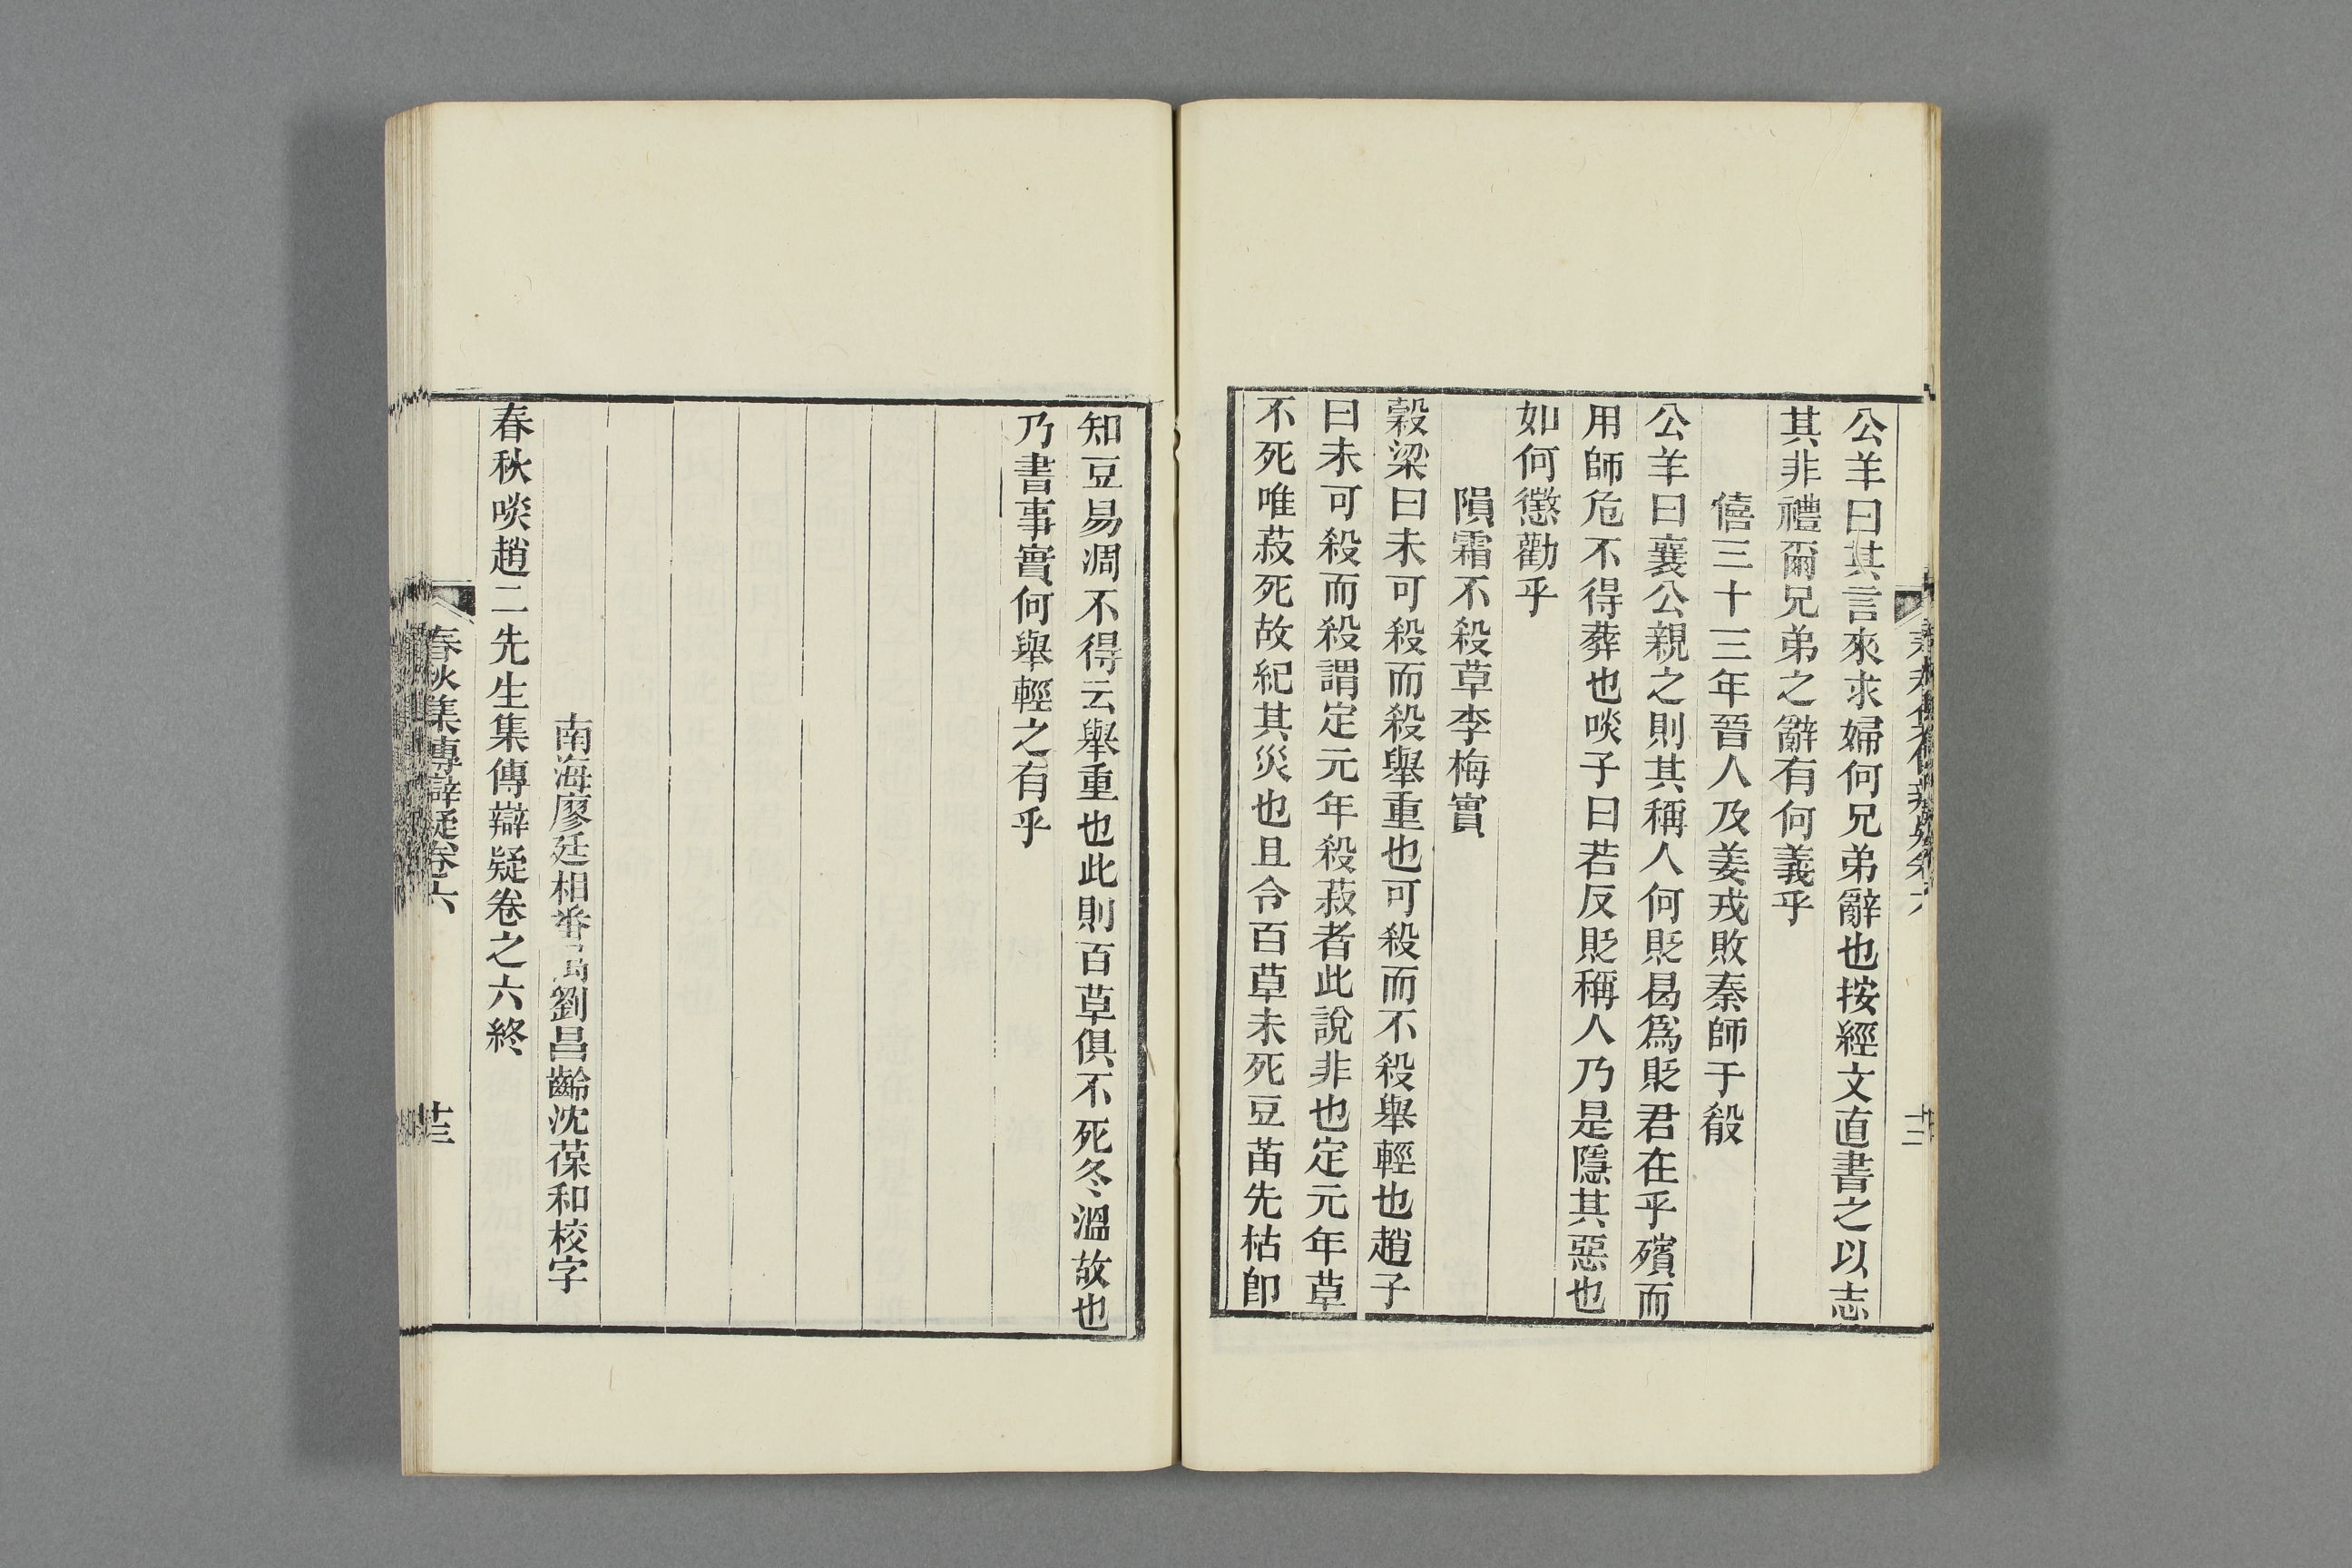 公羊曰其言來求婦何兄弟辭也按經文直書之以志
其非禮爾兄弟之辭有何義乎
僖三十三年晉人及姜戎敗秦師于殽
公羊曰襄公親之則其稱人何貶曷爲貶君在乎殯而
用師危不得葬也啖子曰若反貶稱人乃是隱其惡也
如何懲勸乎
隕霜不殺草李梅實
穀梁曰未可殺而殺舉重也可殺而不殺舉輕也趙子
曰未可殺而殺謂定元年殺菽者此說非也定元年草
不死唯菽死故紀其災也且令百草未死豆苗先枯卽
知豆易凋不得云舉重也此則百草俱不死冬溫故也
乃書事實何舉輕之有乎
南海廖廷相番禺劉昌齡沈葆和校字
春秋啖趙二先生集傳辯疑卷之六終
春秋集傳辯疑卷六